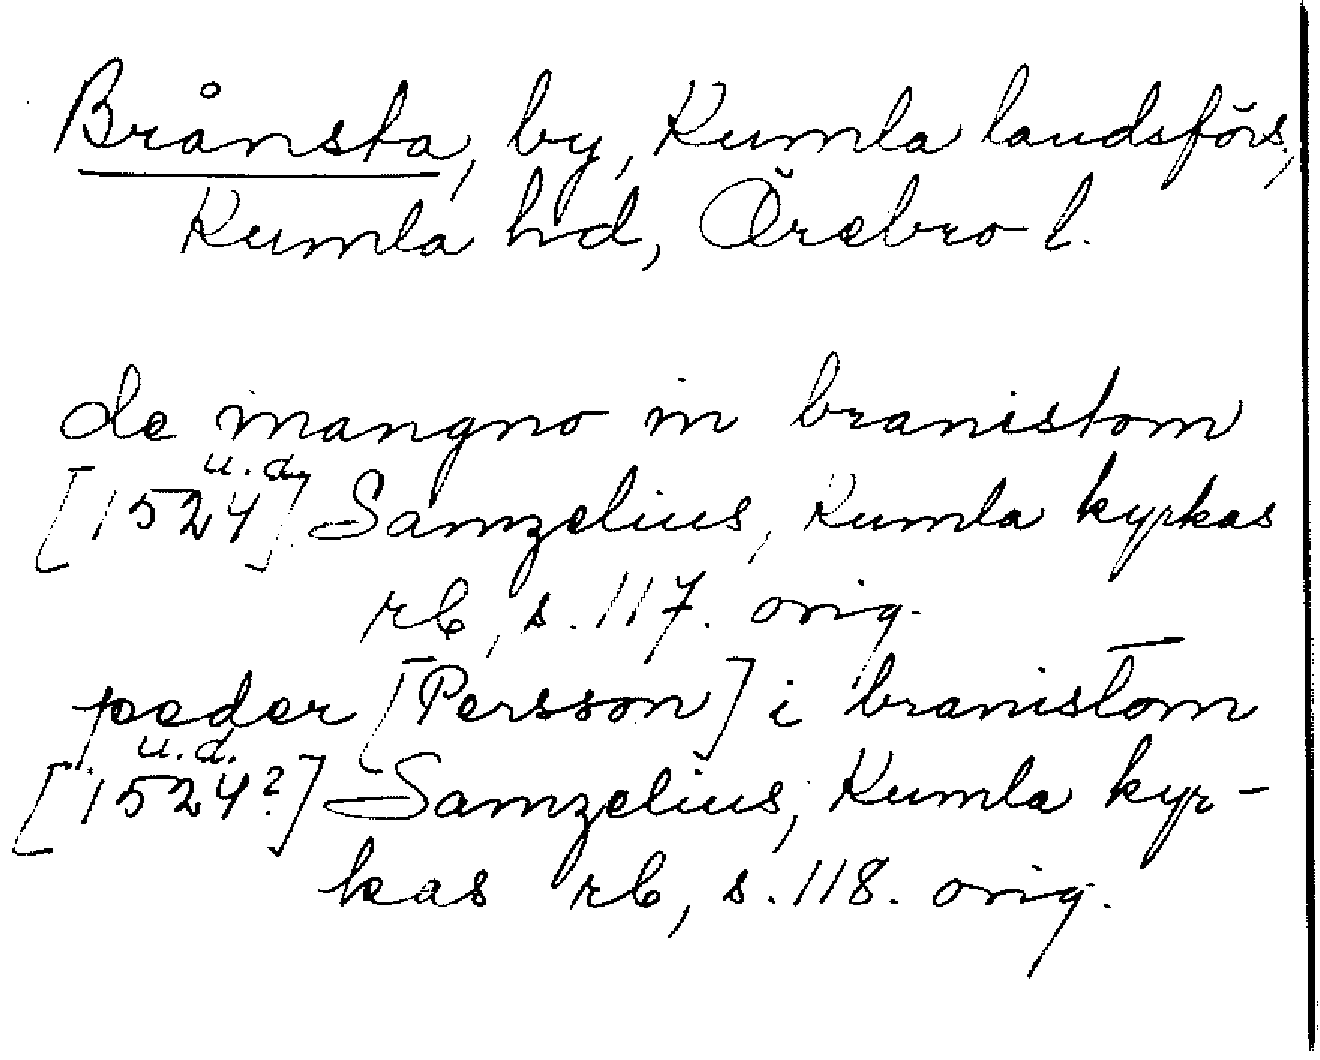 Brånsta, by, Kumla landsförs.,
Kumla hd, Örebro l.
de mangno in branistom
u.d.
[1524] Samzelius, Kumla kyrkas
rb, s. 117. orig.
peder [Persson] i branistom̅
u.d.
[1524?] Samzelius, Kumla kyr-
kas rb, s. 118. orig.